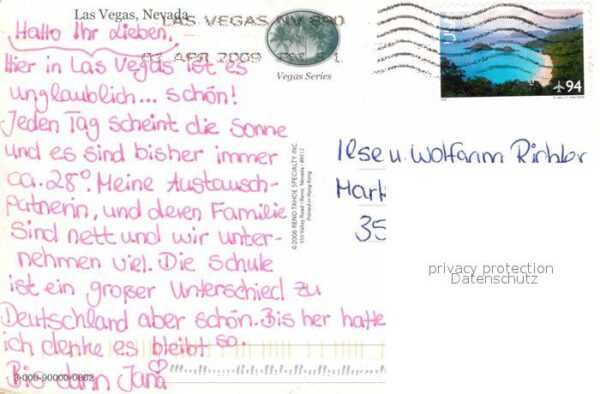 Las Vegas, Nevada
LAS VEGAS NV 890
APR 2009
Vegas Series
94
Hallo Ihr Lieben.
Hier in Las Vegas ist es
unglaublich... schön!
Jeden Tag scheint die Sonne
und es sind bisher immer
ca. 28°. Meine Austausch-
patnerin, und deren Familie
sind nett und wir unter-
nehmen viel. Die Schule
ist ein großer Unterschied zu
Deutschland aber schön. Bis her hatte
ich denke es bleibt so.
Bis dann Jana
3-008-90000-0802
©2006 RENO TAHOE SPECIALTY INC.
550 Valley Road • Reno, Nevada • 89512
Printed in Hong Kong
Ilse u. Wolfarm Richter
Mark
35
privacy protection
Datenschutz